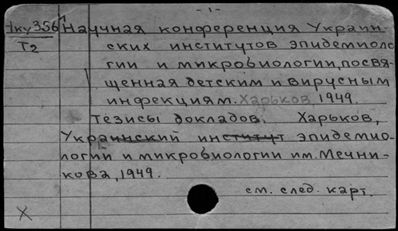 - 1 -
1ку356 Научная конференция Украин-
Т2 ских институтов эпидемиоло
гии и микробиологии, посвя-
щенная детским и вирусным
инфекциям. Харьков 1949.
Тезисы докладов. Харьков,
Украинский институт эпидемио-
логии и микробиологии им. Мечни-
кова, 1949.
см. след. карт.
X